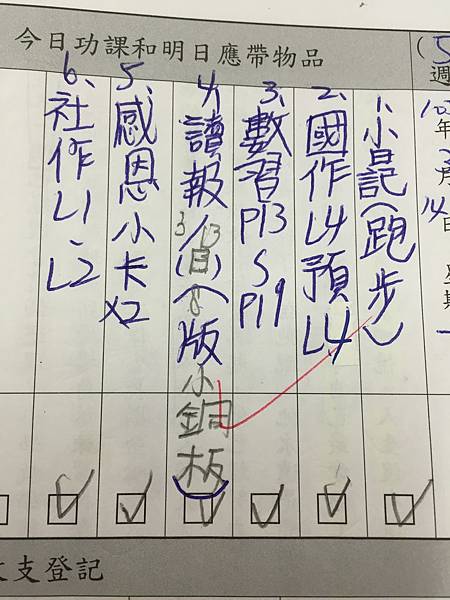 今日功課和明日應帶物品
(5
週
10
年
3
月
14
日
星
期
一
1、小記(跑步)
2、國作L4預L4
3、數習P13~P19
4、讀報3/13(日)8版小銅板
5、感恩小卡x2
6、社作L1、L2
支登記